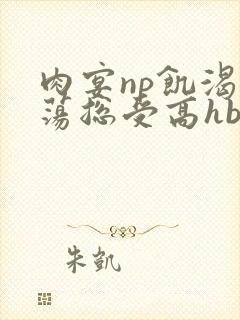 肉宴np飢渴
蕩總受高hb
朱凱